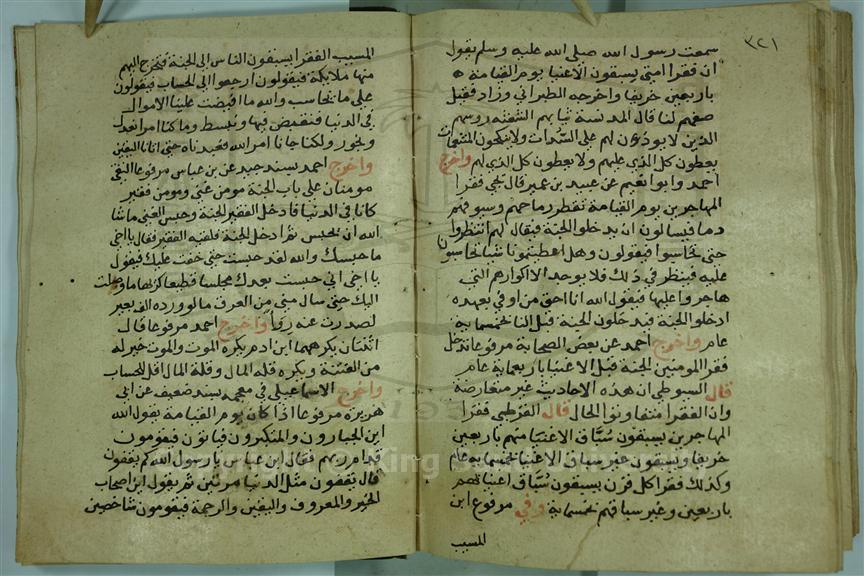 ٣٢١
سمعت رسول الله صلى الله عليه وسلم يقول
ان فقرا امتى يسبقون الاغنيا يوم القيامة
باربعين خريفا واخرجه الطبراني وزاد فقيل
صفهم لنا قال المدنسة ثيابهم الشعثة روسهم
الذين لا يوذن لهم على السدات ولا ينكحون المتنعمات
يعطون كل الذى عليهم ولا يعطون كل الذى لهم واخرج
احمد وابو نعيم عن عبيد بن عمير قال يجى فقرا
المهاجرين يوم القيامة تقطر رماحهم وسيوفهم
دما فيسالون ان يدخلوا الجنة فيقال لهم انتظروا
حتى تحاسبوا فيقولون وهل اعطيتمونا شيا تحاسبونا
عليه فينظر فى ذلك فلا يوجد الا اكوارهم التى
هاجروا عليها فيقول الله انا احق من اوفى بعهده
ادخلوا الجنة فيدخلون الجنة قبل الناس بخمسماية
عام واخرج احمد عن بعض الصحابة مرفوعا تدخل
فقرا المومنين الجنة قبل الاغنيا باربعماية عام
قال السيوطى ان هذه الاحاديث غير متعارضة
وان الفقرا متفاوتوا الحال قال القرطبى فقرا
المهاجرين يسبقون سباق الاغنيا منهم باربعين
خريفا ويسبقون غير سباق الاغنيا بخمسماية عام
وكذلك فقرا كل قرن يسبقون سباق اغنيائهم
باربعين وغير سباقهم بخمسماية وفي مرفوع ابن
المسيب
المسيب الفقرا يسبقون الناس الى الجنة فتخرج اليهم
منها ملايكة فيقولون ارجعوا الى الحساب فيقولون
على ما نحاسب والله ما افيضت علينا الاموال
فى الدنيا فنقبض فيها ونبسط وما كنا امرا نعدل
ونجور ولكنا جانا امر الله فعبدناه حتى اتانا اليقين
واخرج احمد بسند جيد عن بن عباس مرفوعا التقى
مومنان على باب الجنة مومن غنى ومومن فقير
كانا فى الدنيا فادخل الفقير الجنة وحبس الغنى ما شا
الله ان يحبس ثم ادخل الجنة فلقيه الفقير فقال يا اخى
ما حبسك والله لقد حبست حتى خفت عليك فيقول
يا اخى انى حبست بعدك محبسا فظيعا كريها ما وصلت
اليك حتى سال منى من العرق ما لو ورده الف بعير
لصدرت عنه روا واخرج احمد مرفوعا قال
اثنتان يكرههما ابن ادم يكره الموت والموت خير له
من الفتنة ويكره قلة المال وقلة المال اقل للحساب
واخرج الاسماعيلى فى معجمه بسند ضعيف عن ابى
هريره مرفوعا اذا كان يوم القيامة يقول الله
اين الجبارون والمتكبرون فياتون فيقومون
قدام ربهم فقال ابن عباس يا رسول الله كم يقفون
قال يقفون مثل الدنيا مرتين ثم يقول اين اصحاب
الخير والمعروف واليقين والرحمة فيقومون شاخصين